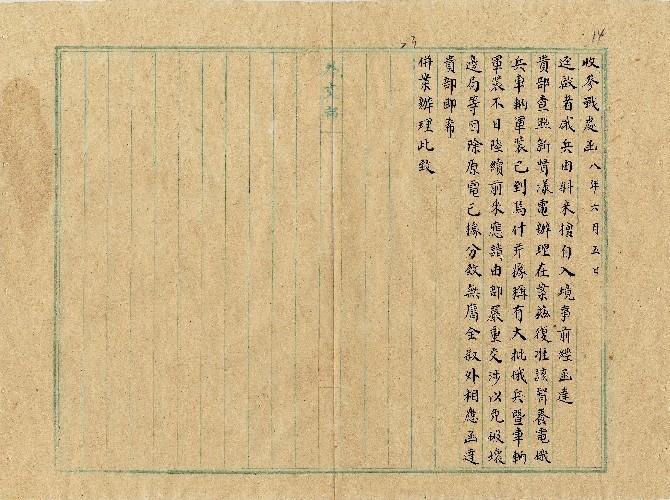 14
23
收參戰處函 八年六月五日
逕啟者俄兵由科來擅自入境事前經函達
貴部查照新督漾電辦理在案茲復准該督養電俄
兵車輛軍裝已到烏什并據稱有大批俄兵暨車輛
軍裝不日陸續前來應請由部嚴重交涉以免破壞
邊局等因除原電已據分致無庸全敘外相應函達
貴部即希
併案辦理此致
外交部